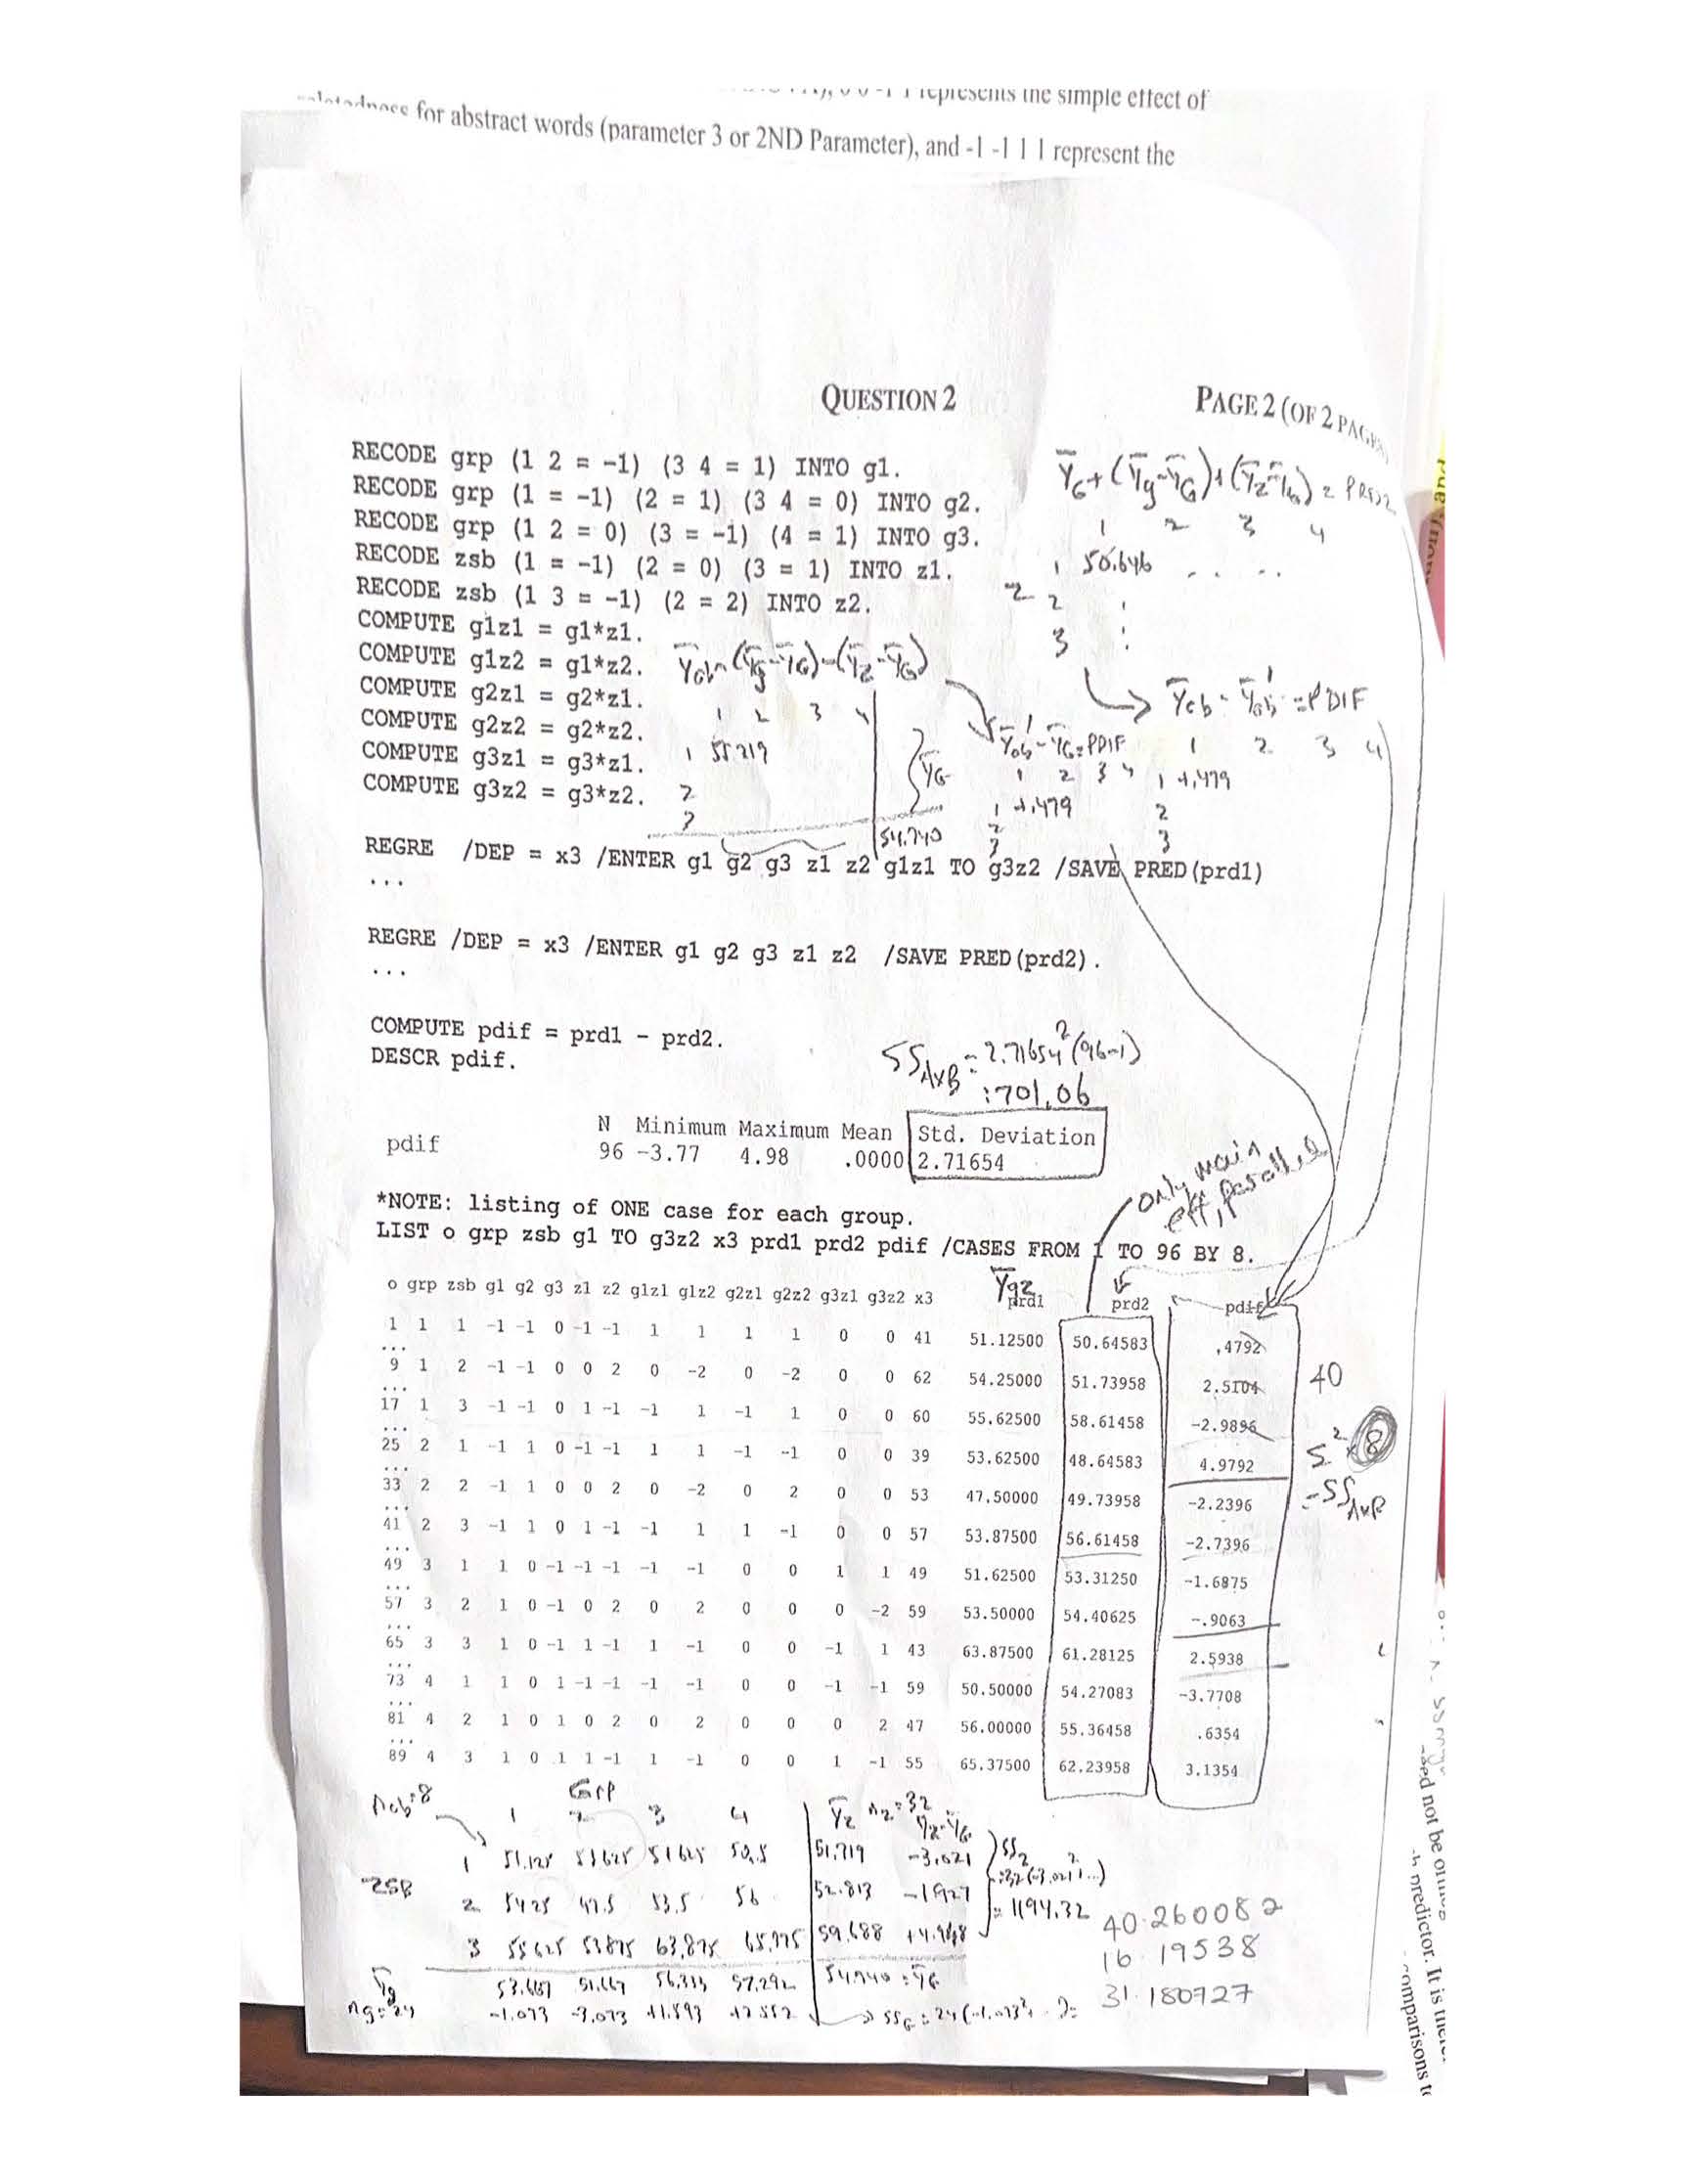 represents the simple effect of
for abstract words (parameter 3 or 2ND Parameter), and -1 -1 1 1 represent the
QUESTION 2
PAGE 2 (OF 2 PAGES
RECODE grp (1 2 = -1) (3 4 = 1) INTO g1.
RECODE grp (1 = -1) (2 = 1) (3 4 = 0) INTO g2.
RECODE grp (1 2 = 0) (3 = -1) (4 = 1) INTO g3.
RECODE zsb (1 = -1) (2 = 0) (3 = 1) INTO z1.
RECODE zsb (1 3 = -1) (2 = 2) INTO z2.
COMPUTE g1z1 = g1*z1.
COMPUTE g1z2 = g1*z2.
COMPUTE g2z1 = g2*z1.
COMPUTE g2z2 = g2*z2.
COMPUTE g3z1 = g3*z1.
COMPUTE g3z2 = g3*z2.
1 2 3 4
1 50.646 . . . . .
2 2
3
1 2 3 4
1 55 219
54.740
= PDIF
1 2 3 4
1 +.479
2
3
= PDIF
1 2 3 4
1 +.479
2
3
REGRE /DEP = x3 /ENTER g1 g2 g3 z1 z2 g1z1 TO g3z2 /SAVE PRED(prd1)
...
REGRE /DEP = x3 /ENTER g1 g2 g3 z1 z2 /SAVE PRED(prd2).
...
COMPUTE pdif = prd1 - prd2.
DESCR pdif.
SSAxB = 2.71654²(96-1)
= 701.06
N Minimum Maximum Mean Std. Deviation
pdif 96 -3.77 4.98 .0000 2.71654
only main
eff, parallel
*NOTE: listing of ONE case for each group.
LIST o grp zsb g1 TO g3z2 x3 prd1 prd2 pdif /CASES FROM 1 TO 96 BY 8.
Ȳgz
o grp zsb g1 g2 g3 z1 z2 g1z1 g1z2 g2z1 g2z2 g3z1 g3z2 x3 prd1 prd2 pdif
1 1 1 -1 -1 0 -1 -1 1 1 1 1 0 0 41 51.12500 50.64583 .4792
...
9 1 2 -1 -1 0 0 2 0 -2 0 -2 0 0 62 54.25000 51.73958 2.5104
...
17 1 3 -1 -1 0 1 -1 -1 1 -1 1 0 0 60 55.62500 58.61458 -2.9896
...
25 2 1 -1 1 0 -1 -1 1 1 -1 -1 0 0 39 53.62500 48.64583 4.9792
...
33 2 2 -1 1 0 0 2 0 -2 0 2 0 0 53 47.50000 49.73958 -2.2396
...
41 2 3 -1 1 0 1 -1 -1 1 1 -1 0 0 57 53.87500 56.61458 -2.7396
...
49 3 1 1 0 -1 -1 -1 -1 -1 0 0 1 1 49 51.62500 53.31250 -1.6875
...
57 3 2 1 0 -1 0 2 0 2 0 0 0 -2 59 53.50000 54.40625 -.9063
...
65 3 3 1 0 -1 1 -1 1 -1 0 0 -1 1 43 63.87500 61.28125 2.5938
...
73 4 1 1 0 1 -1 -1 -1 -1 0 0 -1 -1 59 50.50000 54.27083 -3.7708
...
81 4 2 1 0 1 0 2 0 2 0 0 0 2 47 56.00000 55.36458 .6354
...
89 4 3 1 0 1 1 -1 1 -1 0 0 1 -1 55 65.37500 62.23958 3.1354
40
8
= SSAxB
Grp
1 2 3 4 Ȳz nz=32
1 51.125 53625 51625 50.5 51.719 -3.021
ZSB
2 5425 47.5 53.5 56 52.813 -1.927
= 1194.32
3 55625 53875 63.875 59.688 +4.948
Ȳg 56.333 57.292 54.740 = ȲG
ng=24 -1.073 -3.073 +1.593 +2.552
40.260082
16 19538
31.180727
need not be
predictor. It is
comparisons to